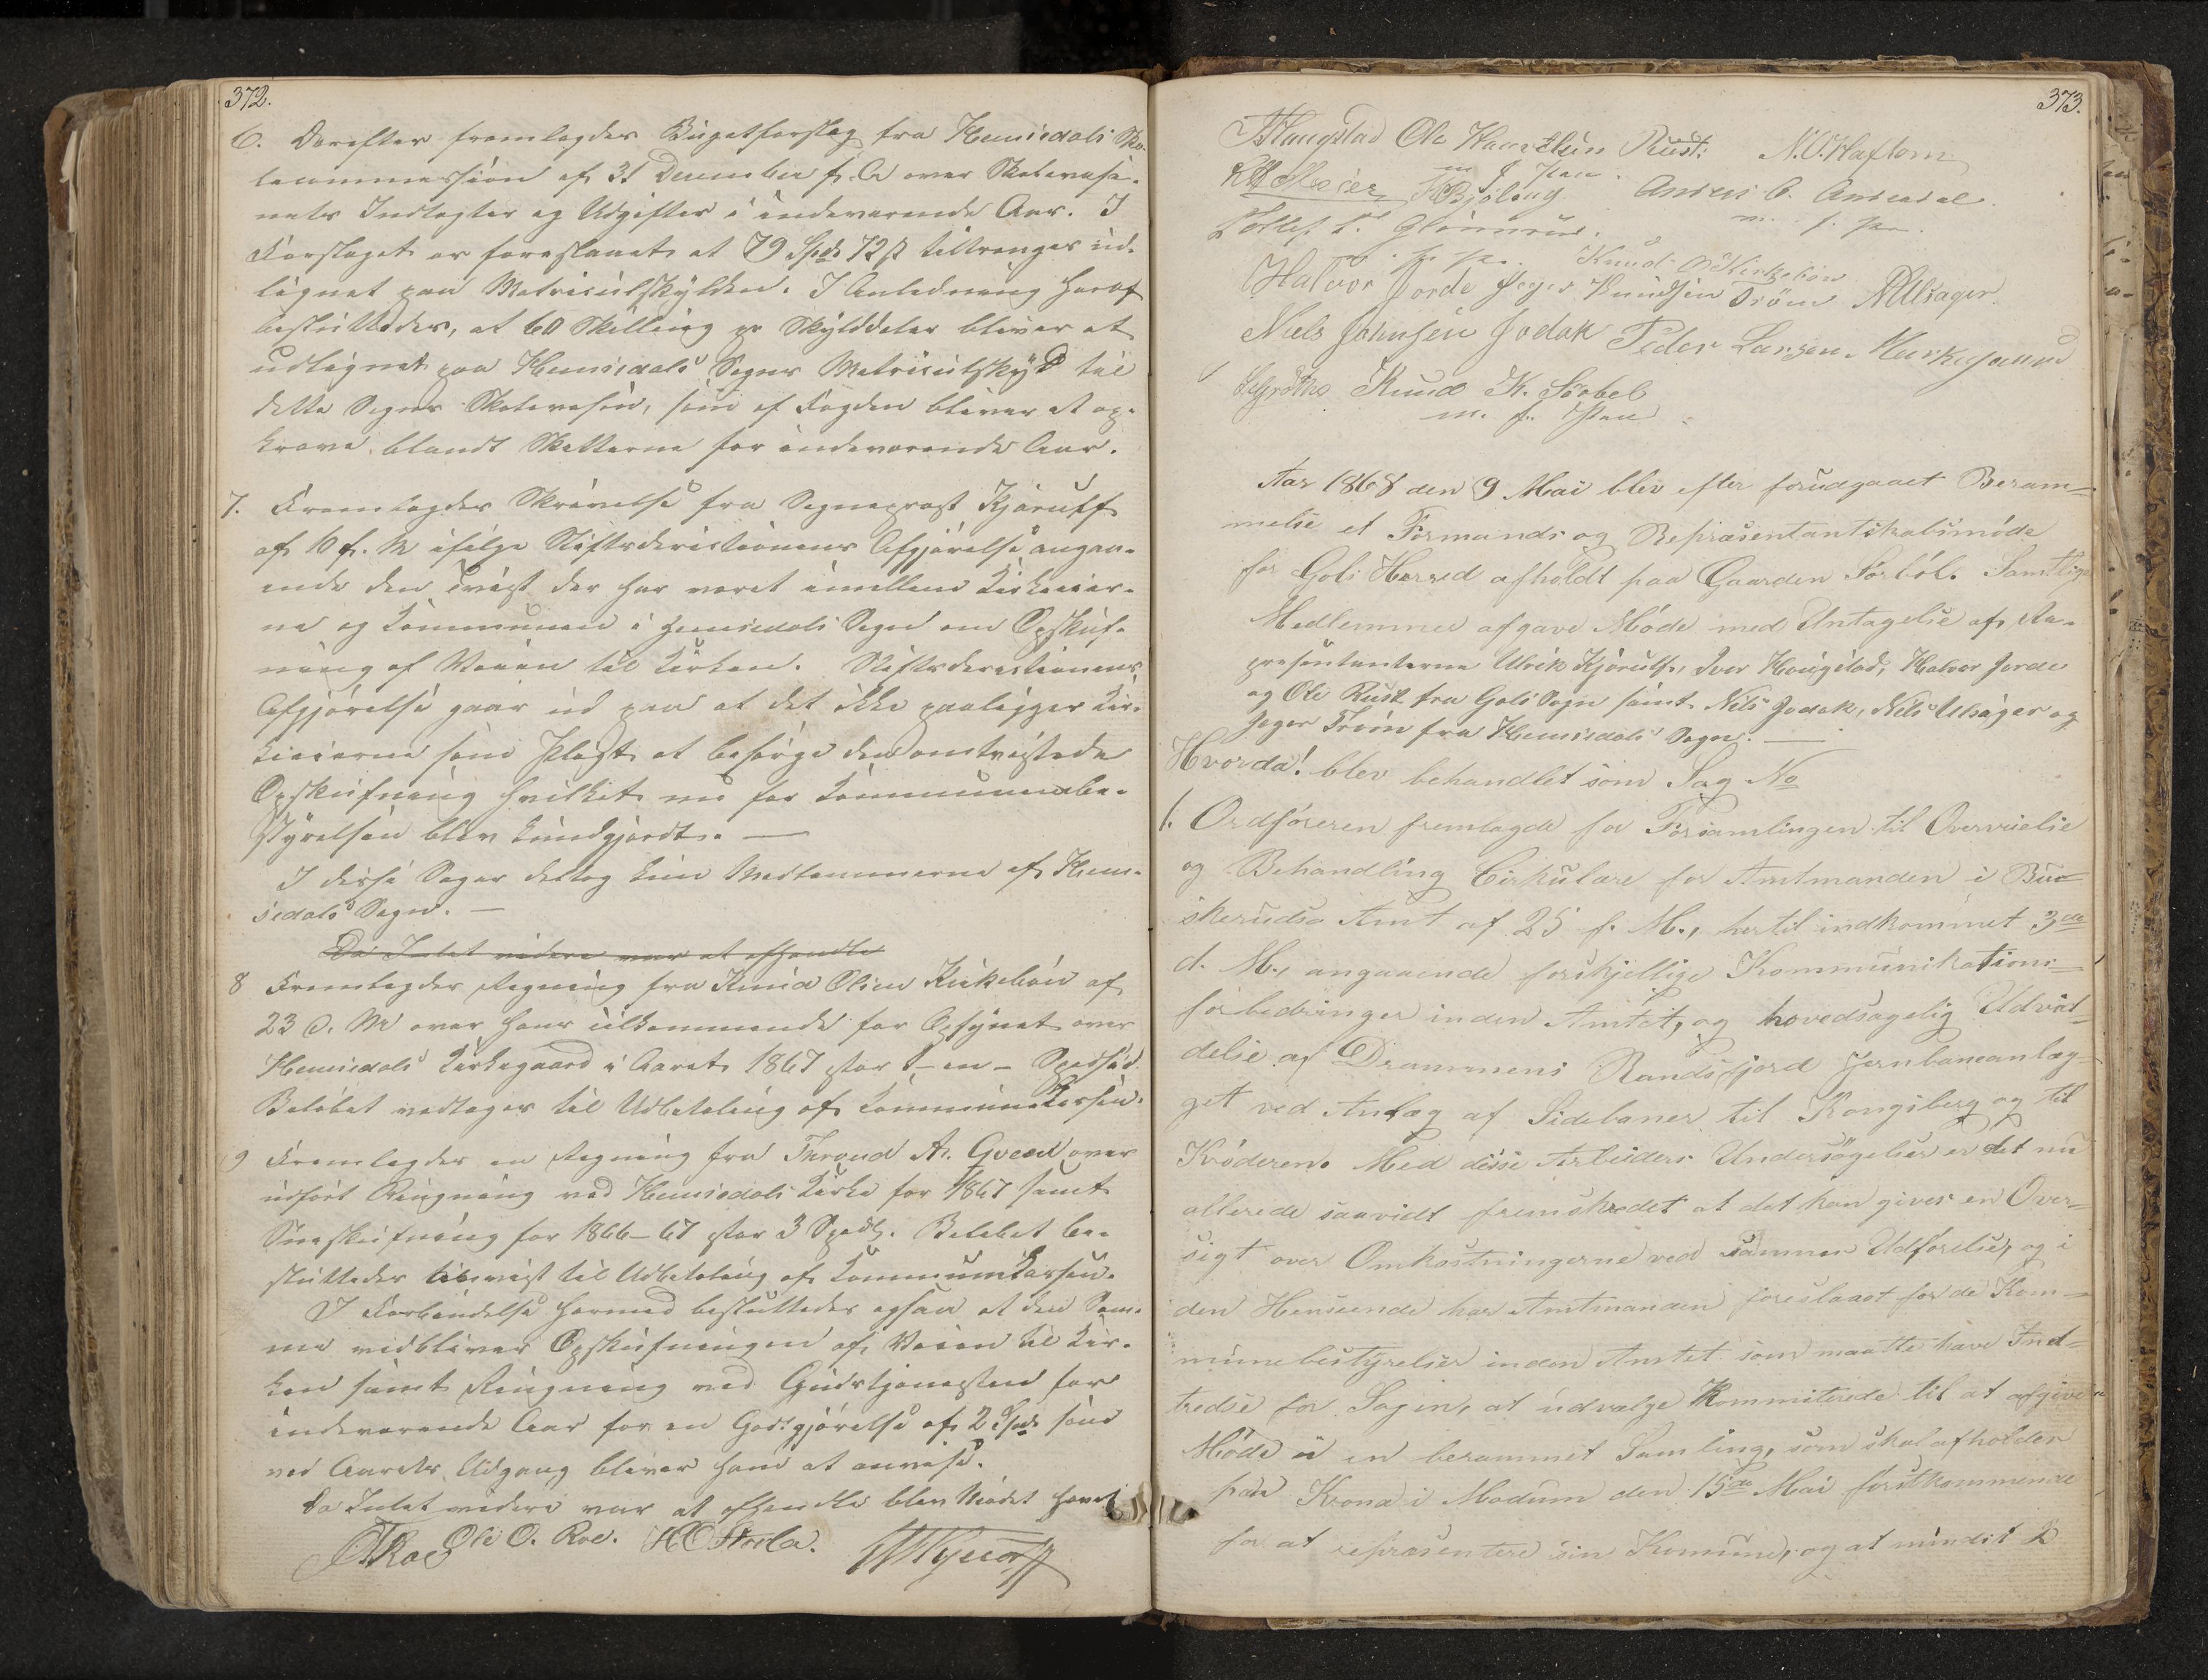 372.
6. Derefter fremlagdes Budgetforslag fra Hemsedals Sko-
lecommission af 31 December f. A over Skolevæse-
nets Indtægter og Udgifter i indeværende Aar. I
Forslaget er foreslaaet at 79 Spd 72 s tiltrænges ud-
lignet paa Matriculskylden. I Anledning heraf
besluttedes, at 60 Skilling pr Skylddaler bliver at
udlignet paa Hemsedals Sogns Matriculskyld til
dette Sogns Skolevæsen, som af Fogden bliver at op-
kræve blandt Skatterne for indeværende Aar.
7. Fremlagdes Skrivelse fra Sogneprest Kjørulff
af 10 f. M ifølge Stiftsdirectionens Afgjørelse angaa-
ende den Tvist der har været imellem Kirkeeier-
ne og Kommunen i Hemsedals Sogn om Opskuf-
ning af Veien til Kirken. Stiftsdirectionens
Afgjørelse gaar ud paa at det ikke paaligger Kir-
keeierne som Pligt at besørge den omtvistede
Opskufning hvilket nu for Kommunebe-
styrelsen blev kundgjordt. —
I disse Sager deltog kun Medlemmerne af Hem-
sedals Sogn. —
Da Intet videre var at afhandle
8 Fremlagdes Regning fra Knud Olsen Kirkebøn af
23 d. M over hans tilkommende for Opsynet over
Hemsedals Kirkegaard i Aaret 1867 stor 1 - en - Specied.
Beløbet vedtages til Udbetaling af Kommunekassen.
9 Fremlagdes en Regning fra Thrond A. over
udført Ringning ved Hemsedals Kirke for 1867 samt
Sneskufning for 1866-67 stor 3 Spedlr. Beløbet be-
sluttedes anvist til Udbetaling af Kommunekassen.
I Forbindelse hermed besluttedes ogsaa at den Sam-
me vedbliver Opskufningen af Veien til Kir-
ken samt Ringning ved Gudstjenesten for
indeværende Aar for en Godtgjørelse af 2 Spd som
ved Aarets Udgang bliver ham at anvise.
Da Intet videre var at afhandle blev Mødet hævet
Roe Ole O. Roe. H O Storla.
373.
Haugstad Ole Rust N. O. Haftorn
m f Pen
Anders O.
m. f. Pen.
Knud O Kirkebøn
Halvor Jorde Jeger Knudsen Trøim N Ulsager
Niels Johnsen Jodak Peder Larsen Markegaard
Knud K. Sørbøl
m. f. Pen
Aar 1868 den 9 Mai blev efter forudgaaet Beram-
melse et Formands og Repræsentantskabsmøde
for Gols Herred afholdt paa Gaarden Sørbøl. Samtlige
Medlemmer afgave Møde med Untagelse af Re-
præsentanterne Ulrik Kjørulf, Iver Hougstad, Halvor Jorde
og Ole Rust fra Gols Sogn samt Nils Jodak, Nils Ulsager og
Jeger Trøim fra Hemsedals Sogn. —
Hvorda! blev behandlet som Sag No
1. Ordføreren fremlagde for Forsamlingen til Overveielse
og Behandling Cirkulære for Amtmanden i Bu-
skeruds Amt af 25 f. M., hertil indkommet 3de
d. M., angaaende forskjellige Kommunikations-
forbedringer inden Amtet, og hovedsagelig Udvid-
delse af Drammens Randsfjord Jernbaneanlæg-
get ved Anlæg af Sidebaner til Kongsberg og til
Krøderen. Med disse Arbeiders Undersøgelser er det nu
allerede saavidt fremskredet at det kan gives en Over-
sigt over Omkostningerne ved sammes Udførelse, og i
den Henseende har Amtmanden foreslaaet for de Kom-
munebestyrelser inden Amtet som maatte have Ind-
tredse for Sagen, at udvælge Kommiterede til at afgive
Møde i en berammet Samling, som skal afholdes
paa Krona i Modum den 15de Mai førstkommende
for at repræsentere sin Komune, og at mindst 2